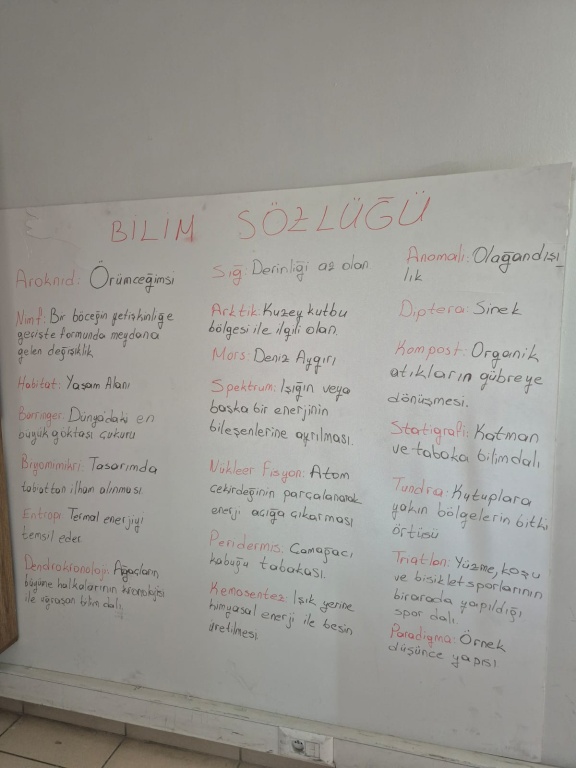 BİLİM SÖZLÜĞÜ
Araknid: Örümceğimsi
Nimf: Bir böceğin yetişkinliğe
geçişte formunda meydana
gelen değişiklik
Habitat: Yaşam Alanı
Barringer: Dünya'daki en
büyük göktaşı çukuru
Biyomimikri: Tasarımda
tabiattan ilham alınması
Entropi: Termal enerjiyi
temsil eder
Dendrokronoloji: Ağaçların
büyüme halkalarının kronolojisi
ile uğraşan bilim dalı
Sığ: Derinliği az olan
Arktik: Kuzey kutbu
bölgesi ile ilgili olan.
Mors: Deniz Aygırı
Spektrum: Işığın veya
başka bir enerjinin
bileşenlerine ayrılması.
Nükleer Fisyon: Atom
çekirdeğinin parçalanarak
enerji açığa çıkarması
Peridermis: Çamağacı
kabuğu tabakası.
Kemosentez: Işık yerine
kimyasal enerji ile besin
üretilmesi
Anamali: Olağandışı
lık
Diptera: Sinek
Kompost: Organik
atıkların gübreye
dönüşmesi.
Statigrafi: Katman
ve tabaka bilimdalı
Tundra: Kutuplara
yakın bölgelerin bitki
örtüsü
Triatlon: Yüzme, koşu
ve bisiklet sporlarının
birarada yapıldığı
spor dalı.
Paradigma: Örnek
düşünce yapısı